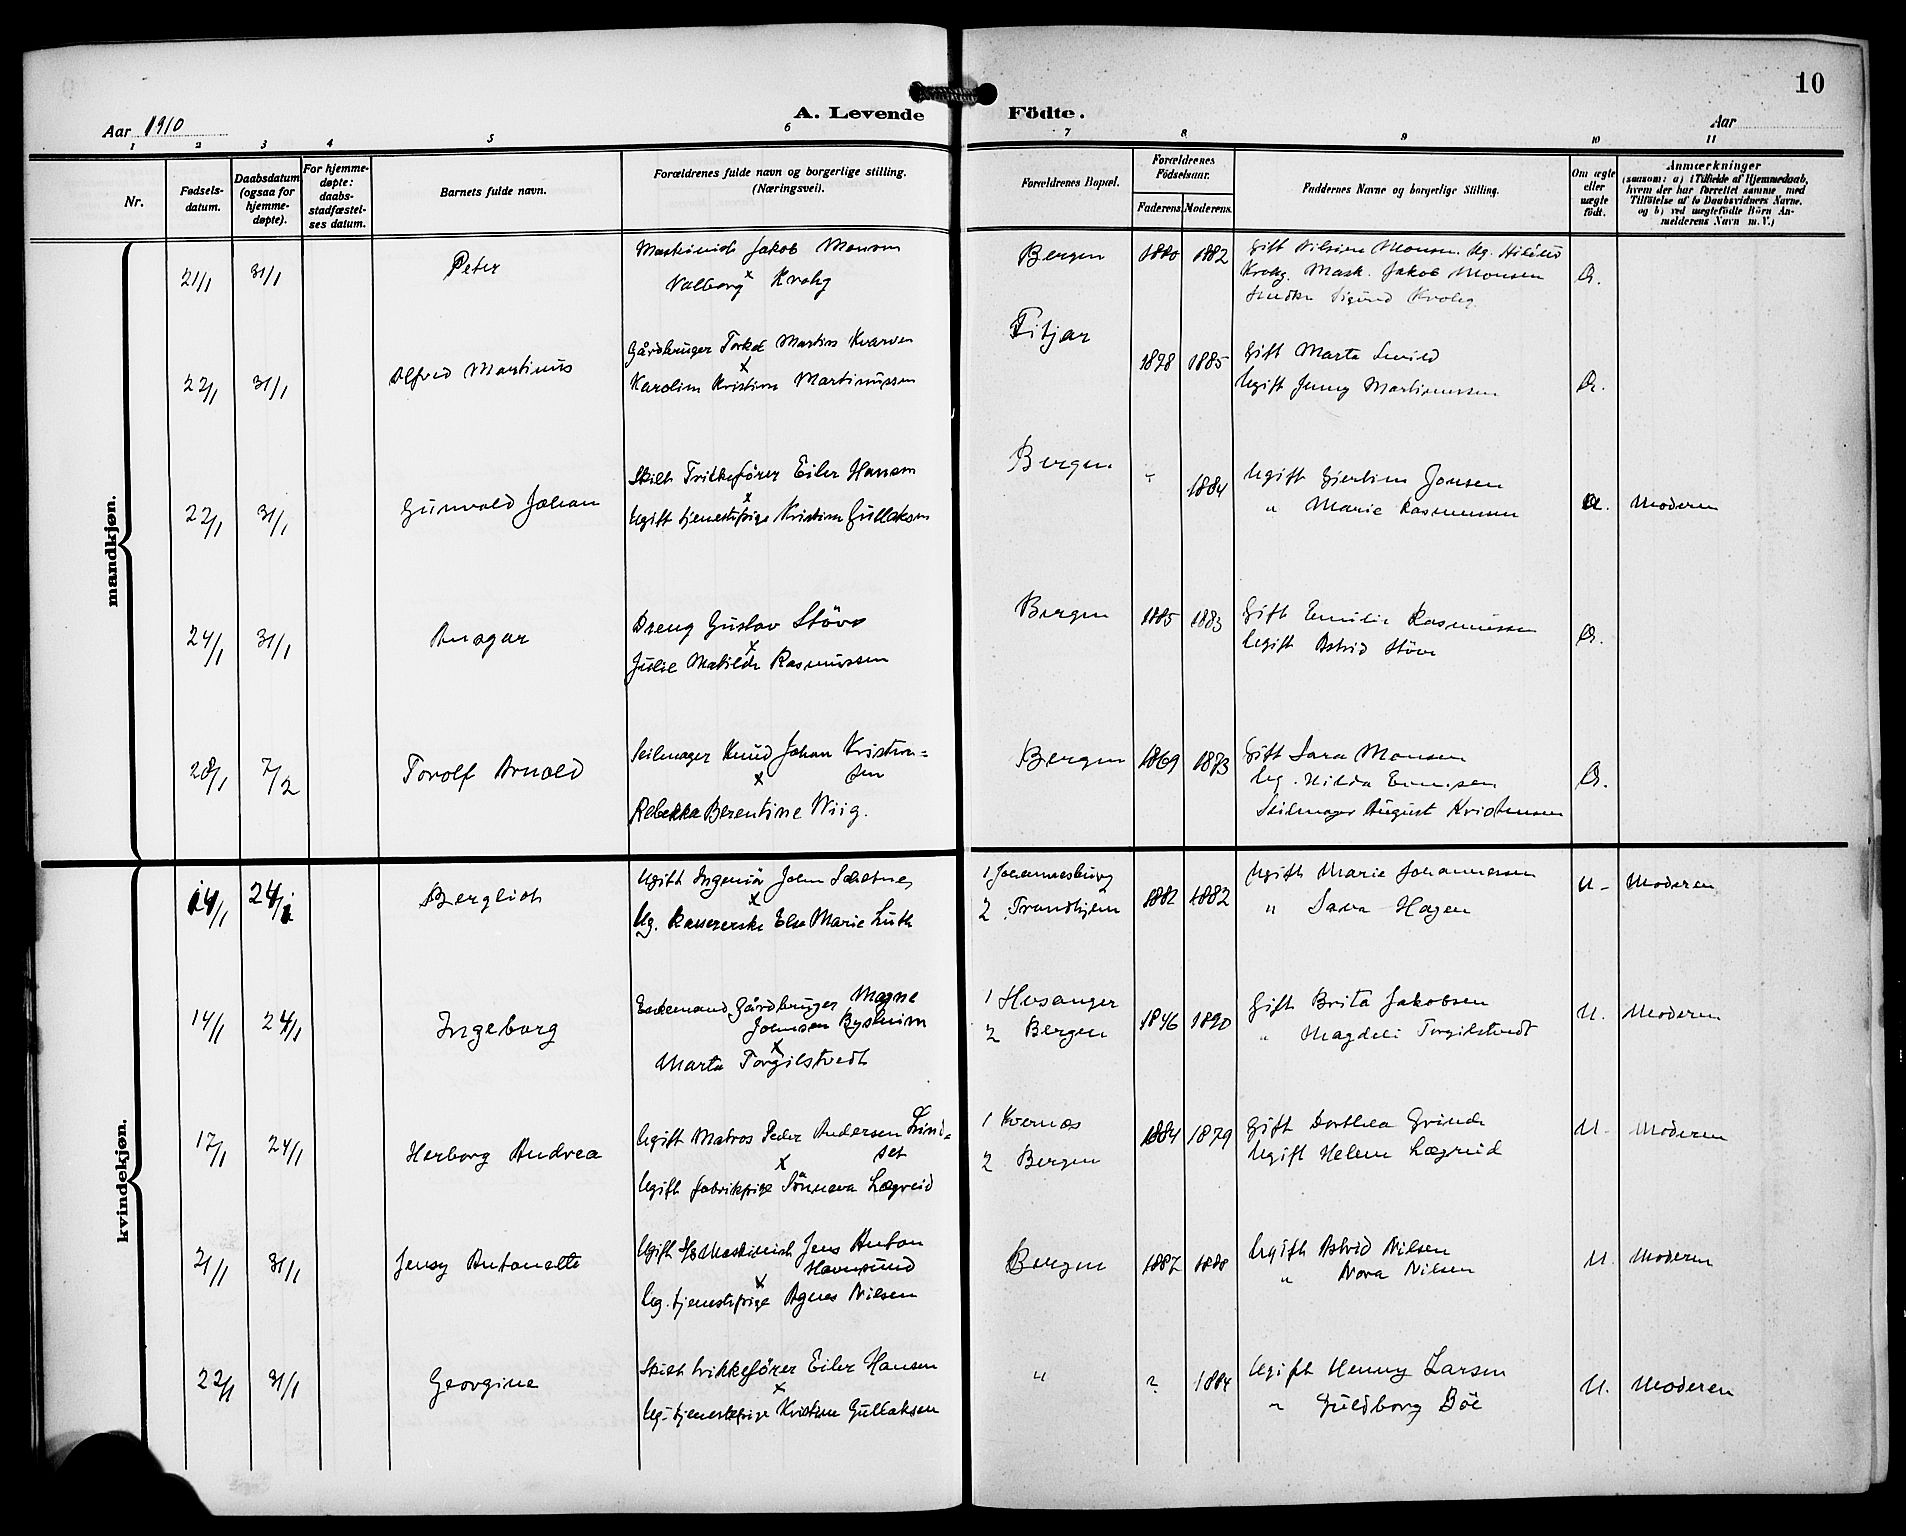 10
A. Levende Födte.
Aar 1910
Aar
1 2 3 4 5 6 7 8 9 10 11
Nr.
Fødsels-
datum.
Daabsdatum
(ogsaa for
hjemme-
døpte).
For hjemme-
døpte:
daabs-
stadfæstel-
ses datum.
Barnets fulde navn.
Forældrenes fulde navn og borgerlige stilling.
(Næringsvei).
Forældrenes Bopæl.
Forældrenes
Fødselsaar.
Faderens. Moderens.
Faddernes Navne og borgerlige Stilling.
Om ægte
eller
uægte
født.
Anmærkninger
(saasom: a) i Tilfælde af Hjemmedaab,
hvem der har forrettet samme, med
Tilföielse af to Daabsvidners Navne,
og b) ved uægtefödte Börn An-
melderens Navn m. V.)
mandkjøn.
21/1 31/1 Peter
Maskinist Jakob Monsen
x
Valborg Krohg
Bergen 1880 1882
Gift Nilsine Monsen Ug.
Krohg. Mask. Jakob Monsen
Sigurd Krohg
Æ.
22/1 31/1 Alfred Martinus
Gårdbruger Torkel Martin Kvarven
x
Karoline Kristine Martinussen
Fitjar 1878 1885
Gift Marta
Ugift Jenny Martinussen
Æ.
22/1 31/1 Gunvald Johan
Skilt Trikkefører Eiler Hansen
x
Ugift tjenestepige Kristine Gullaksen
Bergen ? 1884
Ugift Gjertine Jonsen
" Marie Rasmussen
U. Moderen
24/1 31/1 Ansgar
Dreng Gustav Støve
x
Julie Matilde Rasmussen
Bergen 1885 1883
Gift Emilie Rasmussen
Ugift Astrid Støve
Æ.
28/1 7/2 Torolf Arnold
Seilmager Knud Johan Kristen=
x sen
Rebekka Berentine Wiig.
Bergen 1869 1873
Gift Sara Monsen
Ug. Hilda
Seilmager August Kristensen
Æ.
kvindekjøn.
14/1 24/1 Bergliot
Ugift Ingeniør John
x
Ug. Kassererske Elsa Marie Luth
1 Johannesburg
2 Trondhjem
1882 1882
Ugift Marie Johannessen
" Sara Hagen
U - Moderen
14/1 24/1 Ingeborg
Enkemand Gårdbruger Magne
Johnsen Bysheim
x
Marta Torgilstvedt
1 Hosanger
2 Bergen
1846 1890
Gift Brita Jakobsen
" Magdeli Torgilstvedt
U. Moderen
17/1 24/1 Herborg Andrea
Ugift Matros Peder Andersen Lind=
x set
Ugift fabrikpige Sönneva Lægreid
1 Kvernæs
2 Bergen
1884 1879
Gift Dorthea Grinde
Ugift Helene Lægreid
U. Moderen
21/1 31/1 Jensy Antonette
Ugift Maskinist Jens Anton
Havnsund
x
Ug. tjenestepige Agnes Nilsen
Bergen 1887 1888
Ugift Astrid Nilsen
" Nora Nilsen
U. Moderen
22/1 31/1 Georgine
Skilt trikkefører Eiler Hansen
x
Ug. tjenestepige Kristine Gullaksen
" ? 1884
Ugift Henny Larsen
" Guldborg Böe
U. Moderen